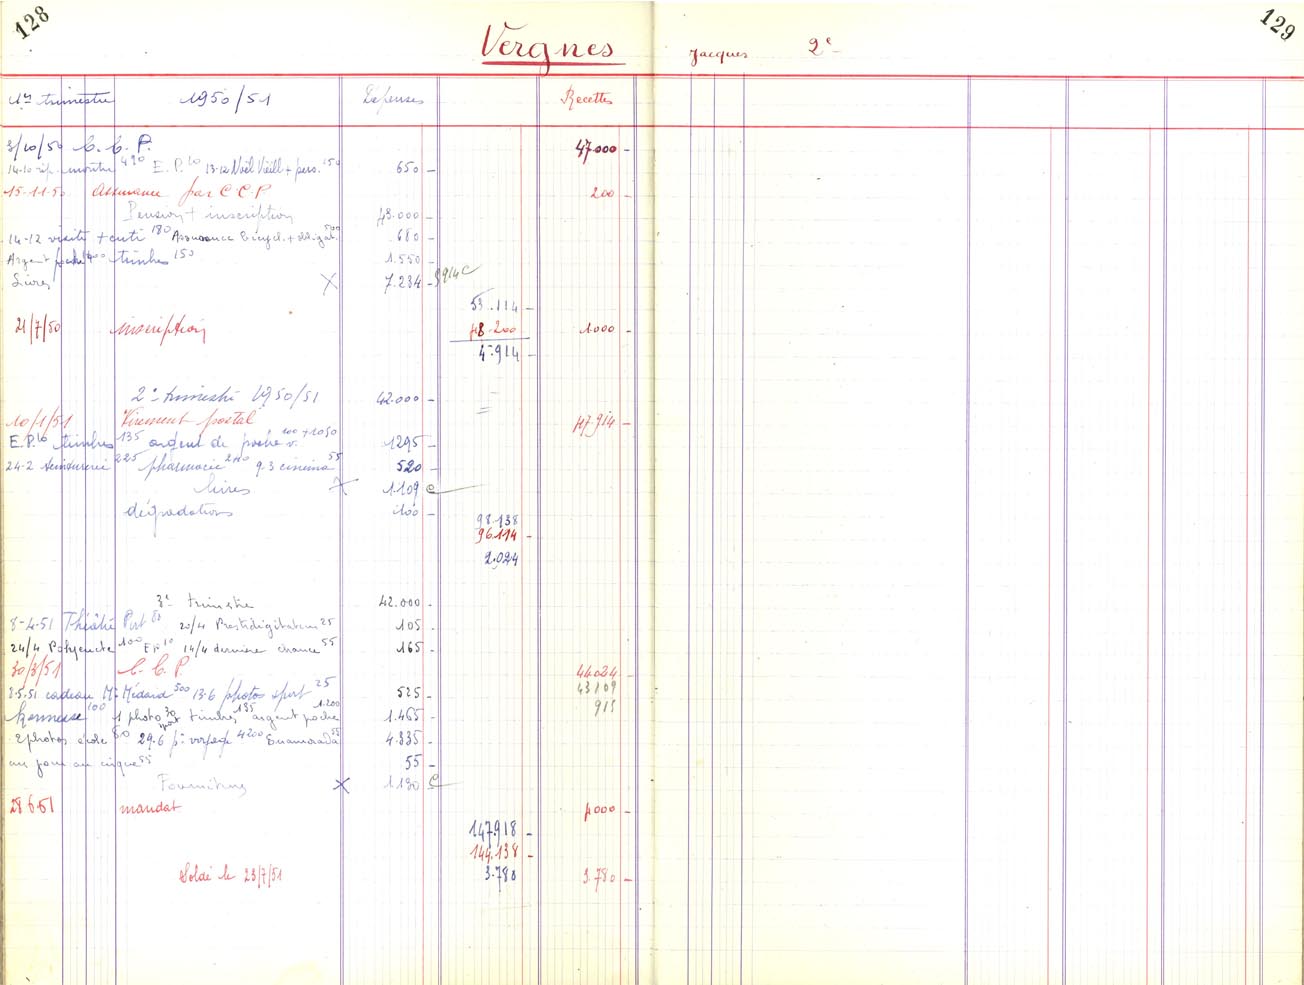 128
129
Vergnes Jacques 2e
1er trimestre 1950/51 Dépenses Recettes
3/10/50 C.C.P. 47.000 -
14-10 rép. montre 490 E.P. 10 13-12 Noël Vieill + pers. 150 650 -
15-11-50 Assurance par C.C.P 200 -
Pension + inscription 43.000 -
14-12 visite + cuti 180 Assurance bicycl. + obligat. 500 680 -
Argent poche 1400 timbres 150 1.550 -
Livres X 7.234 - 5914 C
53.114 -
21/7/50 inscription 48.200 1.000 -
4.914 -
2e trimestre 1950/51 42.000 -
10/1/51 Virement postal 47.914 -
E.P. 10 timbres 135 argent de poche v. 100 + 1050 1295 -
24-2 teinturerie 225 pharmacie 240 9.3 cinéma 55 520 -
livres X 1.109 C
dégradations 100 -
98.138
96.114 -
2.024
3e trimestre 42.000 -
8-4-51 Théâtre Port 80 20/4 Prestidigitateur 25 105 -
24/4 Polyeucte 100 E.P. 10 14/4 dernière chance 55 165 -
30/3/51 C.C.P. 44.024 -
43109
915
2-5-51 cadeau Mr Médard 500 13-6 photos sport 25 525 -
Kermesse 100 1 photo sport 30 timbres 135 argent poche 1.200 1.465 -
2 photos école 80 29.6 pr voyage 4200 Enamorada 55 4.335 -
un jour au cirque 55 55 -
Fournitures X 1.130 C
28-6-51 mandat 4000 -
147.918 -
144.138 -
Soldé le 23/7/51 3.780 3.780 -